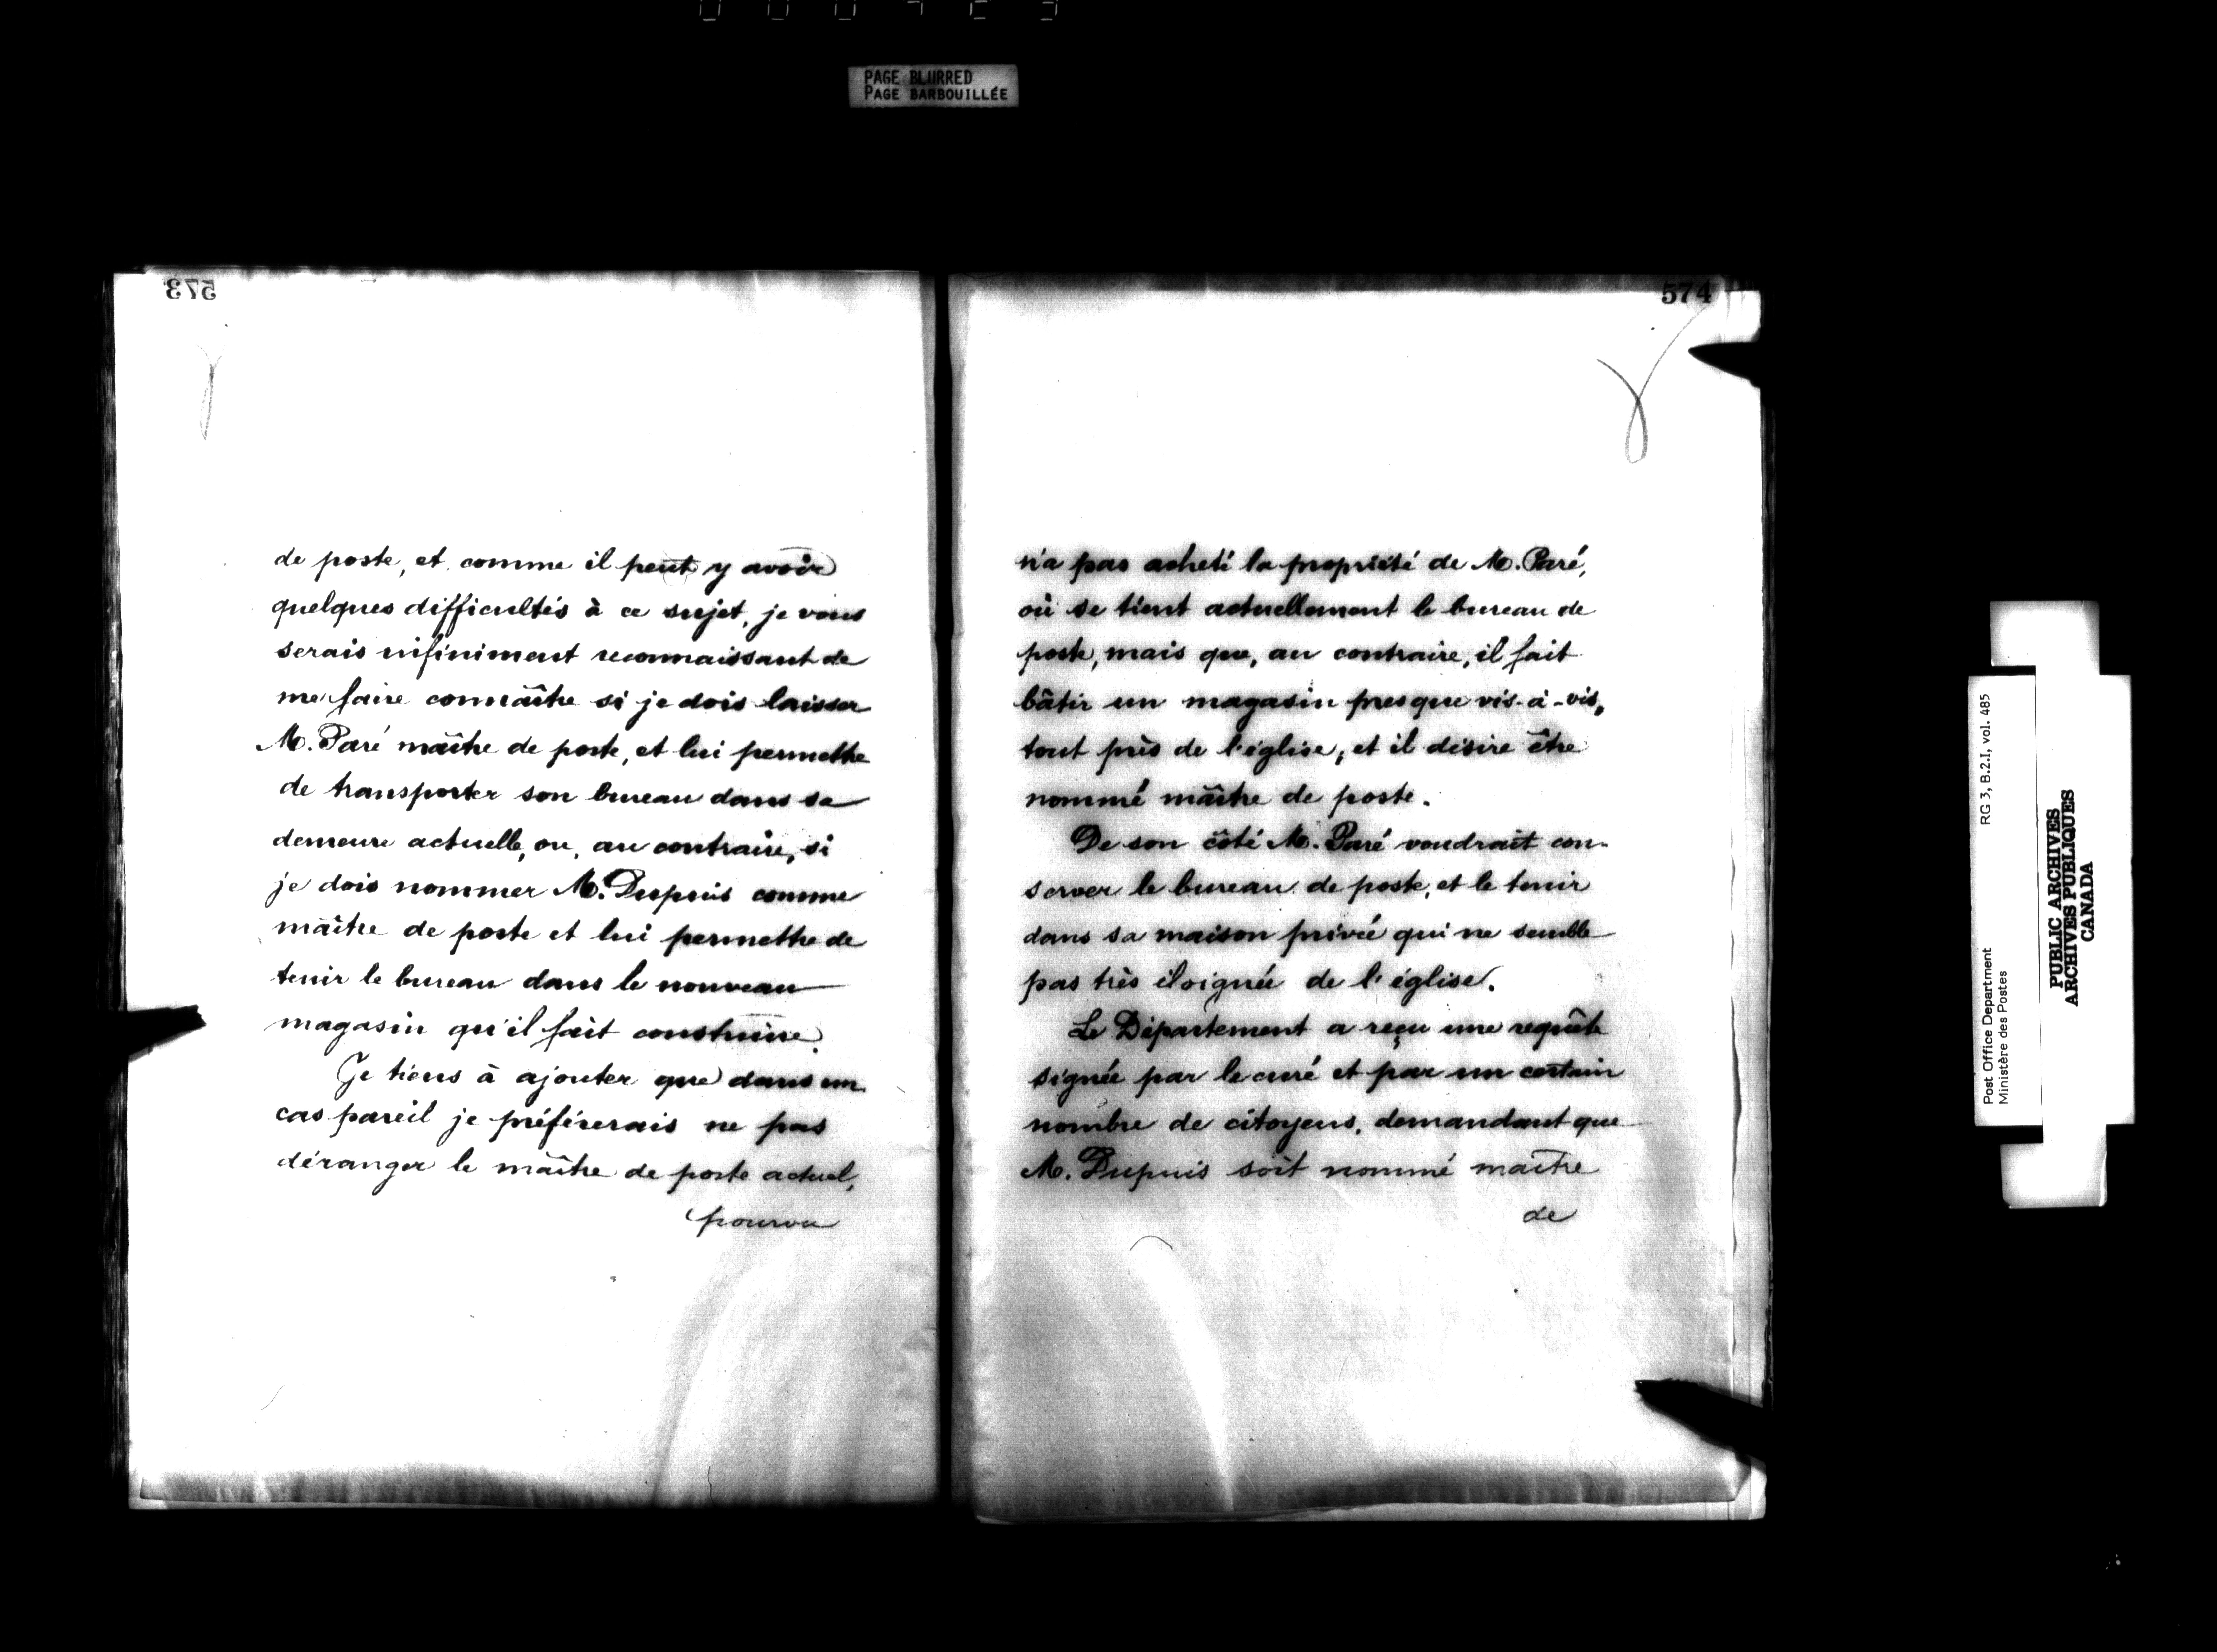 PAGE BLURRED
PAGE BARBOUILLÉE
573
de poste, et comme il peut y avoir
quelques difficultés à ce sujet, je vous
serais infiniment reconnaissant de
me faire connaître si je dois laisser
M. Paré maître de poste, et lui permettre
de transporter son bureau dans sa
demeure actuelle, ou, au contraire, si
je dois nommer M. Dupuis comme
maître de poste et lui permettre de
tenir le bureau dans le nouveau
magasin qu'il fait construire.
Je tiens à ajouter que dans un
cas pareil je préférerais ne pas
déranger le maître de poste actuel,
pourvu
574
n'a pas acheté la propriété de M. Paré,
où se tient actuellement le bureau de
poste, mais que, au contraire, il fait
bâtir un magasin presque vis-à-vis,
tout près de l'église, et il désire être
nommé maître de poste.
De son côté M. Paré voudrait con-
server le bureau de poste, et le tenir
dans sa maison privée qui ne semble
pas très éloignée de l'église.
Le Département a reçu une requête
signée par le curé et par un certain
nombre de citoyens, demandant que
M. Dupuis soit nommé maître
de
Post Office Department RG 3, B.2.I, vol. 485
Ministère des Postes
PUBLIC ARCHIVES
ARCHIVES PUBLIQUES
CANADA